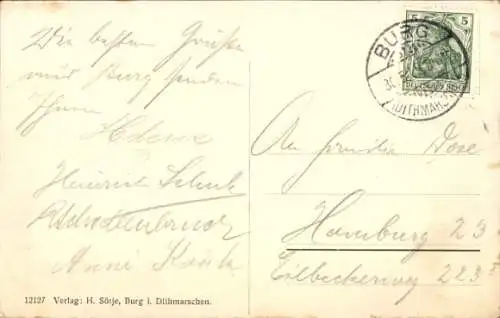 Die besten Grüße
aus Burg senden
Ihnen
Helene
Heinrich Schuh
Anni
12127 Verlag: H. Sörje, Burg i. Dithmarschen.
BURG
(DITHMARSCHEN)
5 5
DEUTSCHES REICH
An Familie Dose
Hamburg 23
Eilbeckerweg 223